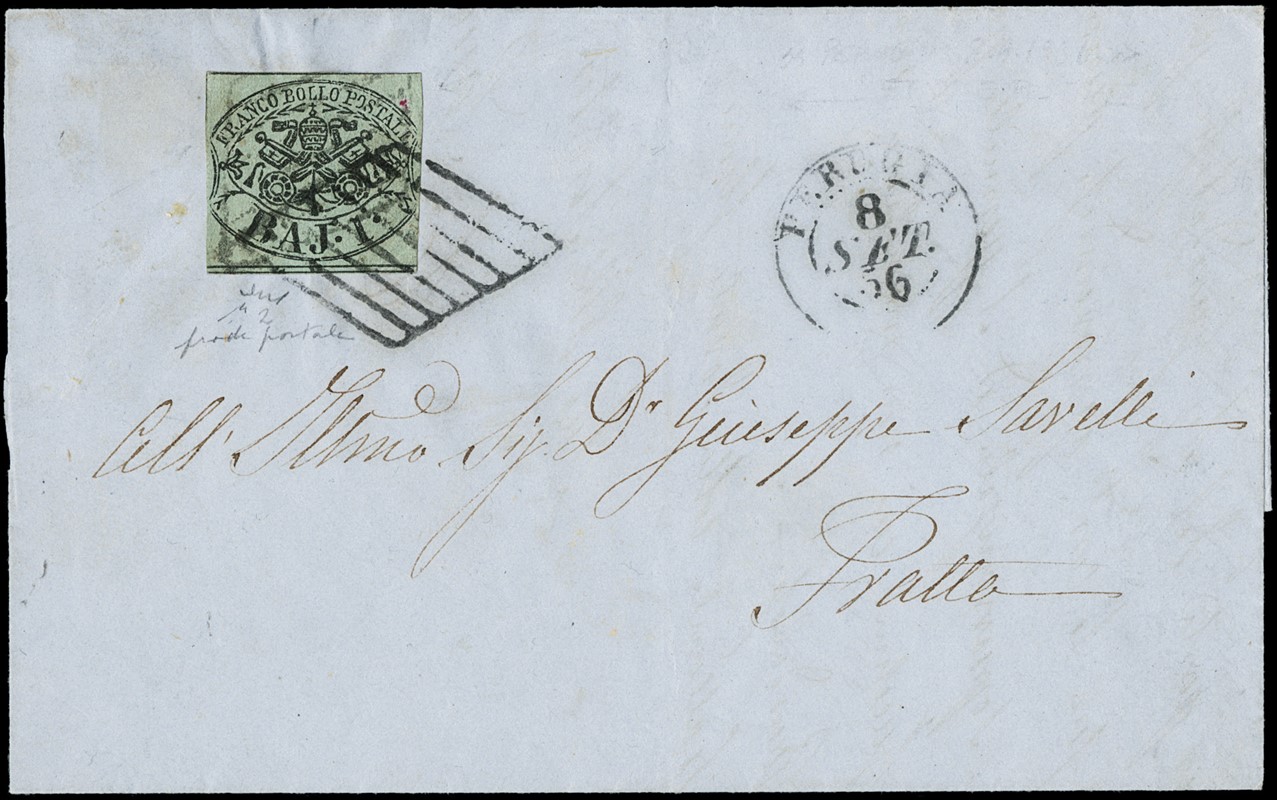 FRANCO BOLLO POSTALE
BAJ. 1
PERUGIA
8
SET.
56
frode postale
All' Illmo Sig. Dr Giuseppe Savelli
Fratta